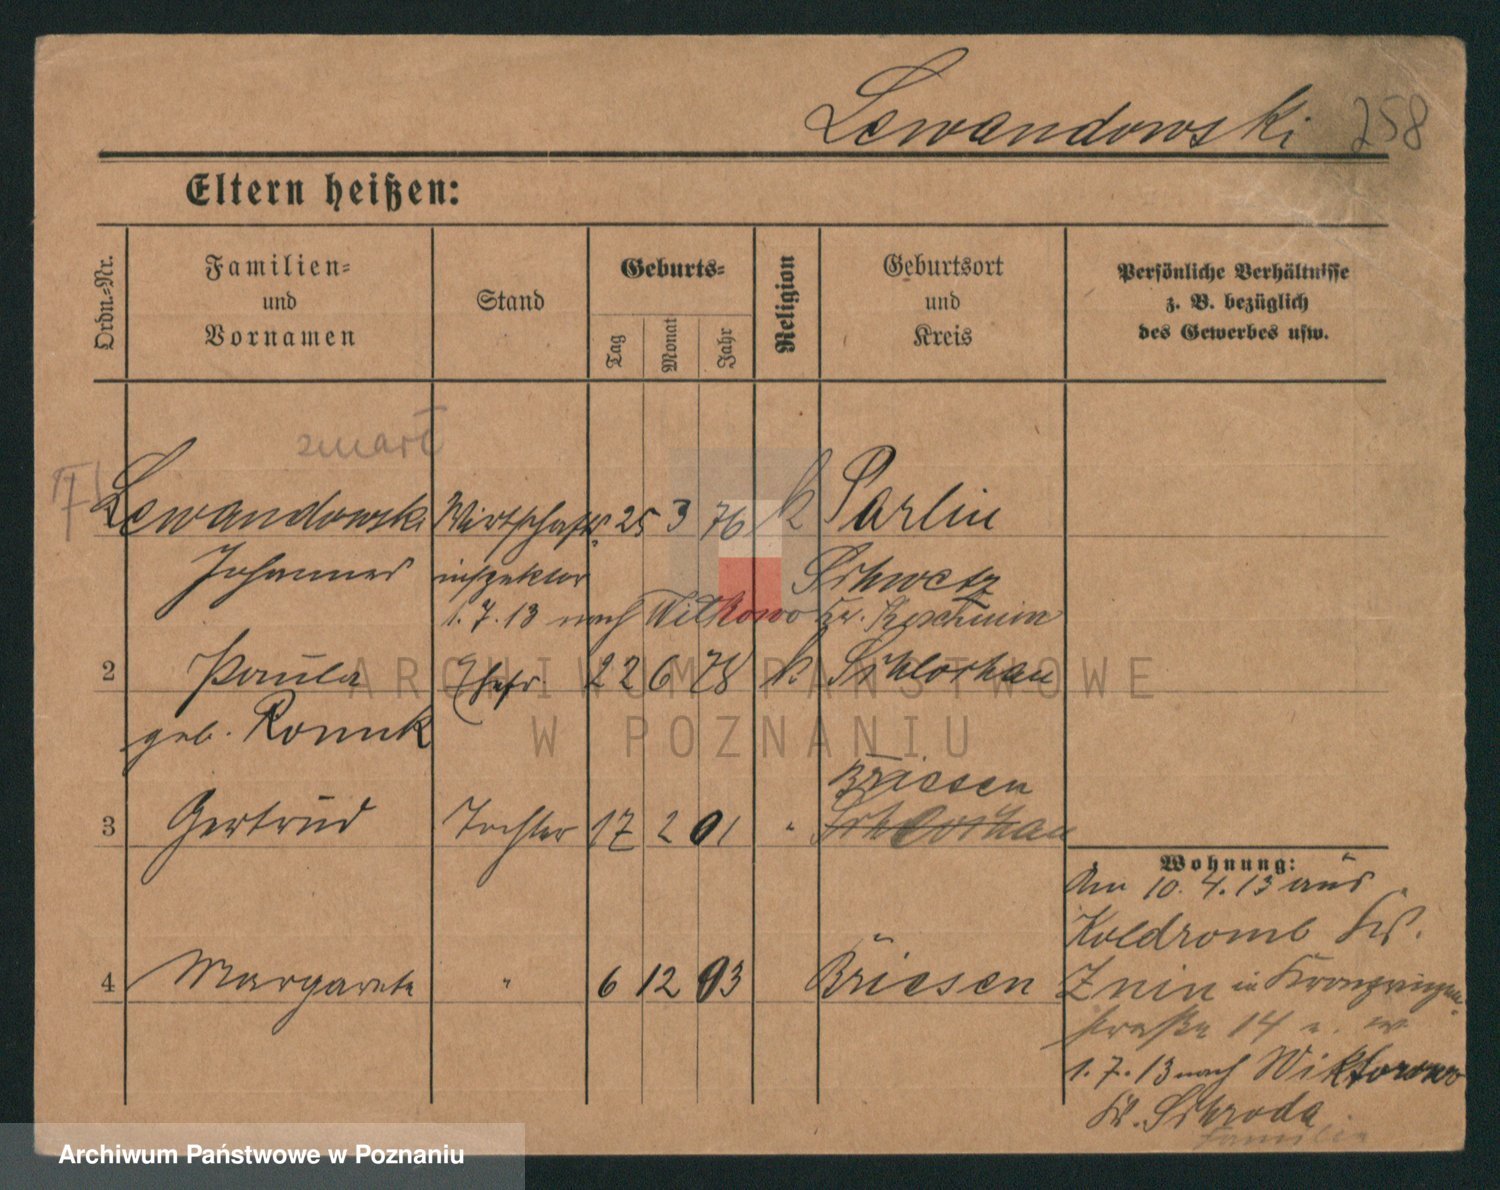 Lewandowski 258
Eltern heißen:
Ordn.-Nr.
Familien-
und
Vornamen
Stand
Geburts-
Tag
Monat
Jahr
Religion
Geburtsort
und
Kreis
Persönliche Verhältnisse
z. B. bezüglich
des Gewerbes usw.
zmarł
Lewandowski Wirtschafts- 25 3 76 k Parlin
Johannes inspektor Schwetz
1.7.13 nach Witkowo Kr. Koschmin
2 Paula Ehefr. 22 6 78 k. Schlochau
geb. Ronnek
Briesen
3 Gertrud Tochter 17 2 01 " Schlochau
Wohnung:
Am 10.4.13 aus
Koldromb Kr.
4 Margarete " 6 12 03 Briesen Znin in Kronprinzen-
straße 14
1.7.13 nach Wiktorowo
Kr. Schroda
Familie
ARCHIWUM PAŃSTWOWE
W POZNANIU
Archiwum Państwowe w Poznaniu